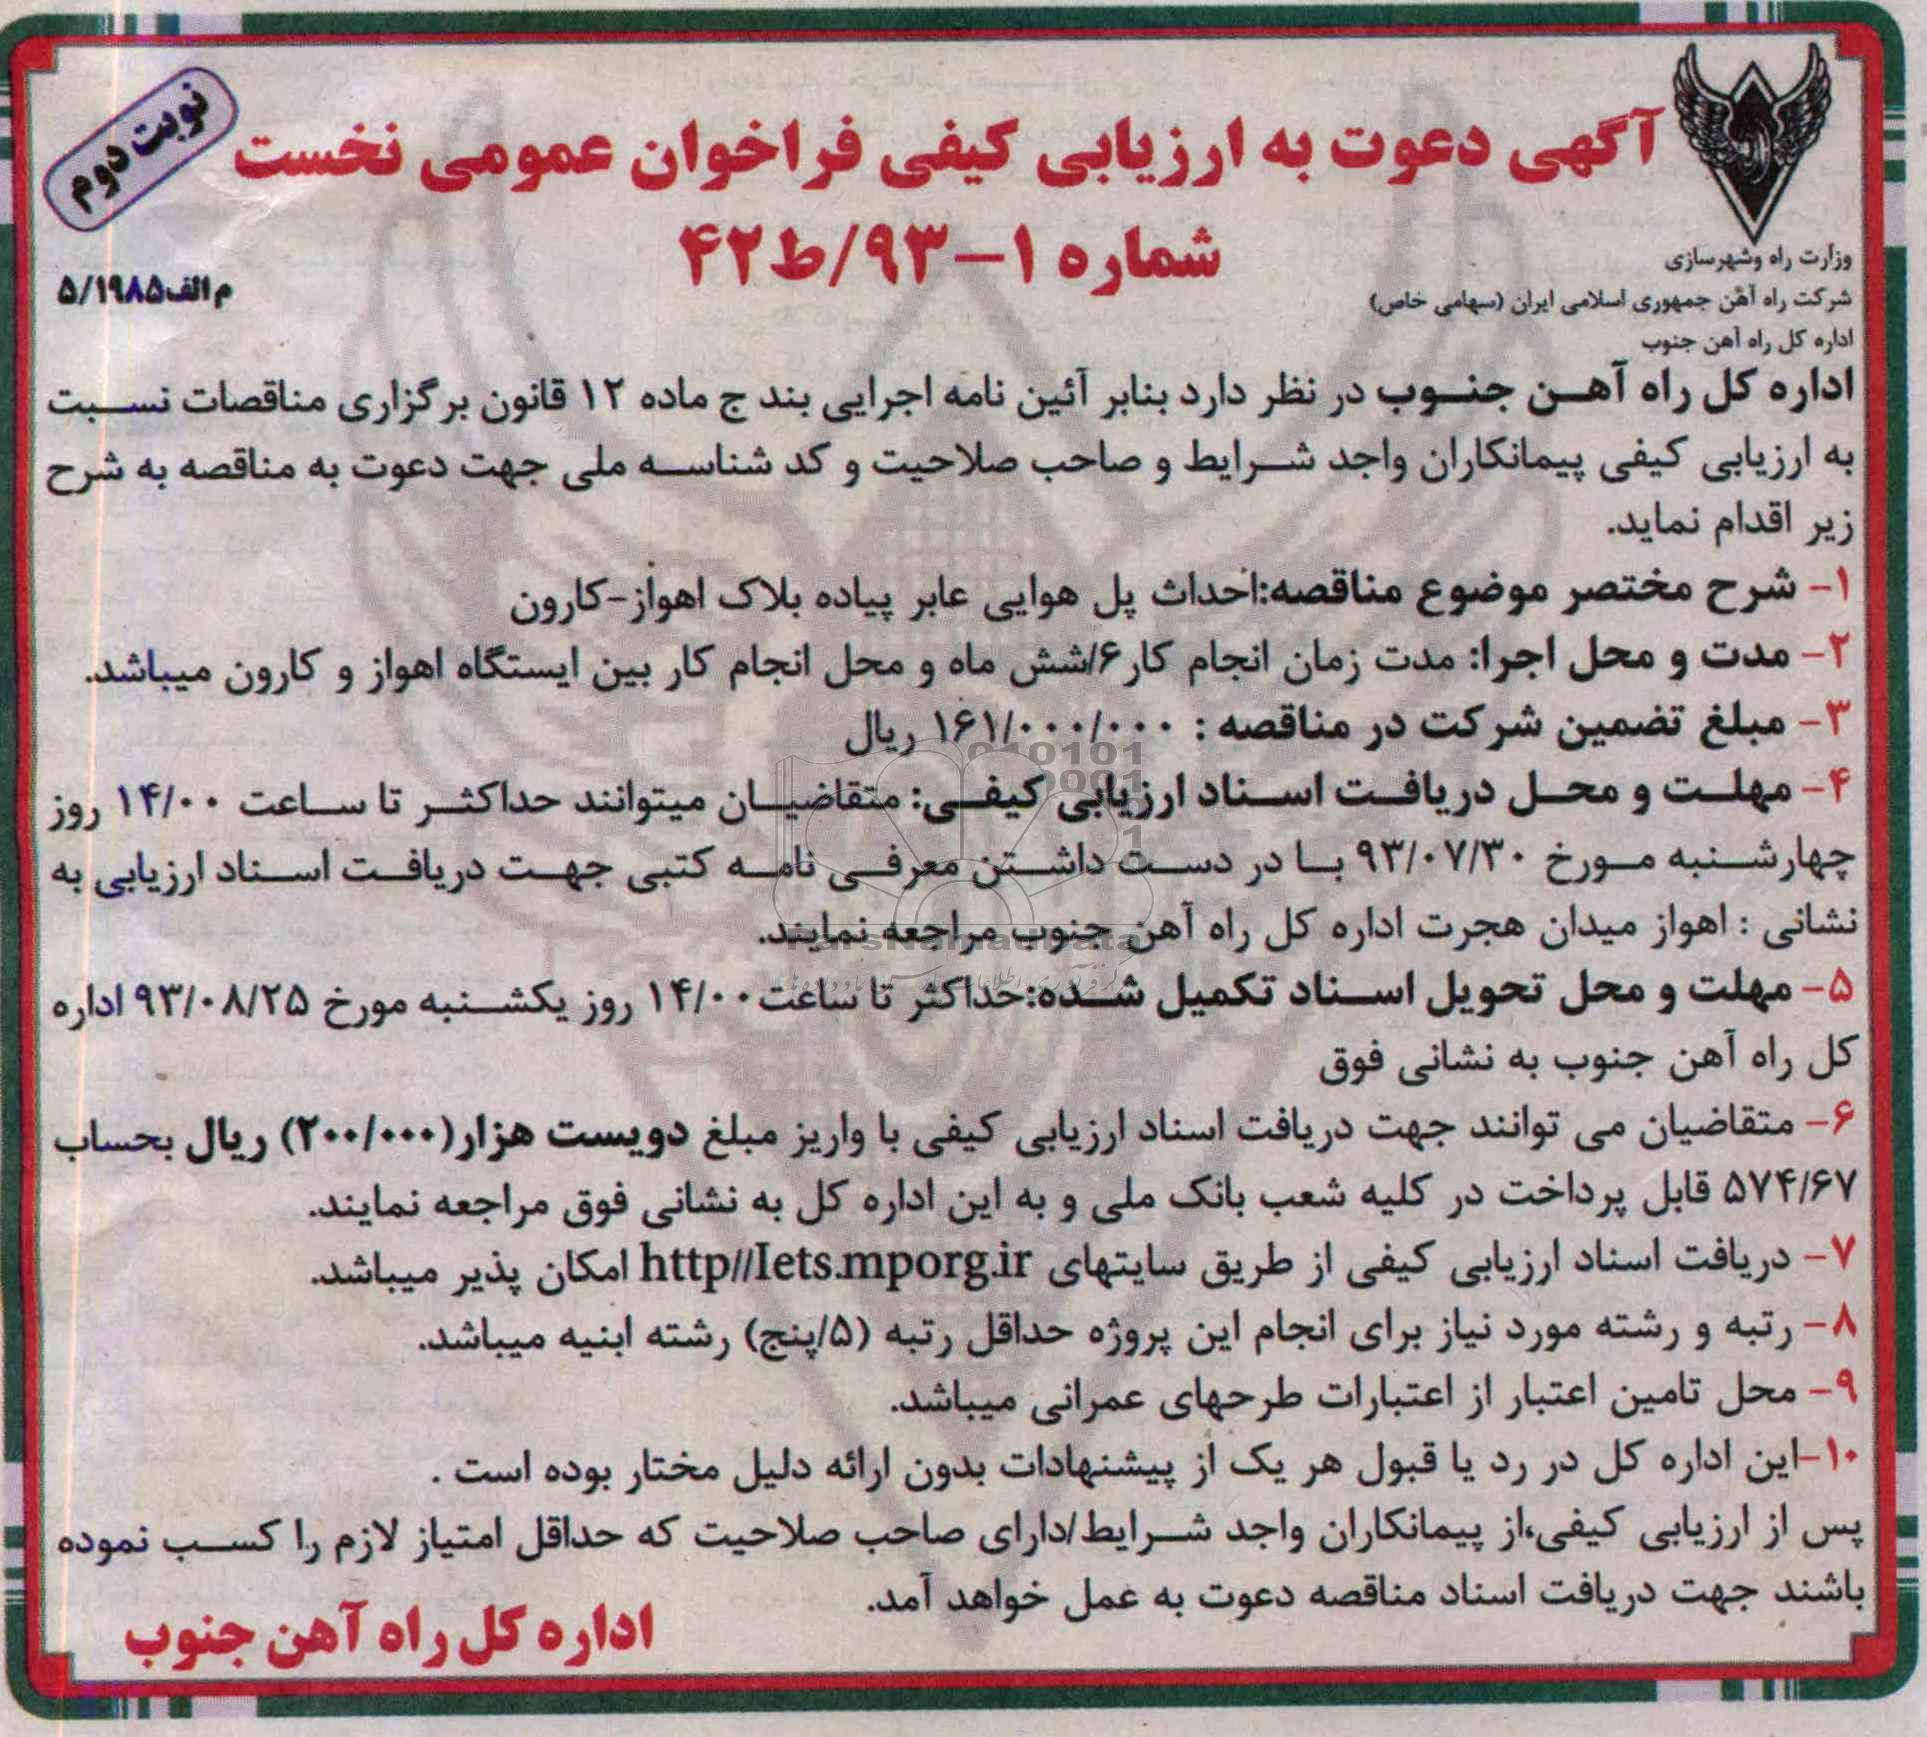 نوبت دوم
آگهی دعوت به ارزیابی کیفی فراخوان عمومی نخست
شماره ۱-۹۳/ط۴۲
وزارت راه وشهرسازی
شرکت راه آهن جمهوری اسلامی ایران (سهامی خاص)
اداره کل راه آهن جنوب
م الف۵/۱۹۸۵
اداره کل راه آهن جنوب در نظر دارد بنابر آئین نامه اجرایی بند ج ماده ۱۲ قانون برگزاری مناقصات نسبت
به ارزیابی کیفی پیمانکاران واجد شرایط و صاحب صلاحیت و کد شناسه ملی جهت دعوت به مناقصه به شرح
زیر اقدام نماید.
۱- شرح مختصر موضوع مناقصه:احداث پل هوایی عابر پیاده بلاک اهواز-کارون
۲- مدت و محل اجرا: مدت زمان انجام کار۶/شش ماه و محل انجام کار بین ایستگاه اهواز و کارون میباشد.
۳- مبلغ تضمین شرکت در مناقصه : ۱۶۱/۰۰۰/۰۰۰ ریال
۴- مهلت و محل دریافت اسناد ارزیابی کیفی: متقاضیان میتوانند حداکثر تا ساعت ۱۴/۰۰ روز
چهارشنبه مورخ ۹۳/۰۷/۳۰ با در دست داشتن معرفی نامه کتبی جهت دریافت اسناد ارزیابی به
نشانی : اهواز میدان هجرت اداره کل راه آهن جنوب مراجعه نمایند.
۵- مهلت و محل تحویل اسناد تکمیل شده:حداکثر تا ساعت ۱۴/۰۰ روز یکشنبه مورخ ۹۳/۰۸/۲۵ اداره
کل راه آهن جنوب به نشانی فوق
۶- متقاضیان می توانند جهت دریافت اسناد ارزیابی کیفی با واریز مبلغ دویست هزار(۲۰۰/۰۰۰) ریال بحساب
۵۷۴/۶۷ قابل پرداخت در کلیه شعب بانک ملی و به این اداره کل به نشانی فوق مراجعه نمایند.
۷- دریافت اسناد ارزیابی کیفی از طریق سایتهای http//Iets.mporg.ir امکان پذیر میباشد.
۸- رتبه و رشته مورد نیاز برای انجام این پروژه حداقل رتبه (۵/پنج) رشته ابنیه میباشد.
۹- محل تامین اعتبار از اعتبارات طرحهای عمرانی میباشد.
۱۰-این اداره کل در رد یا قبول هر یک از پیشنهادات بدون ارائه دلیل مختار بوده است .
پس از ارزیابی کیفی،از پیمانکاران واجد شرایط/دارای صاحب صلاحیت که حداقل امتیاز لازم را کسب نموده
باشند جهت دریافت اسناد مناقصه دعوت به عمل خواهد آمد.
اداره کل راه آهن جنوب